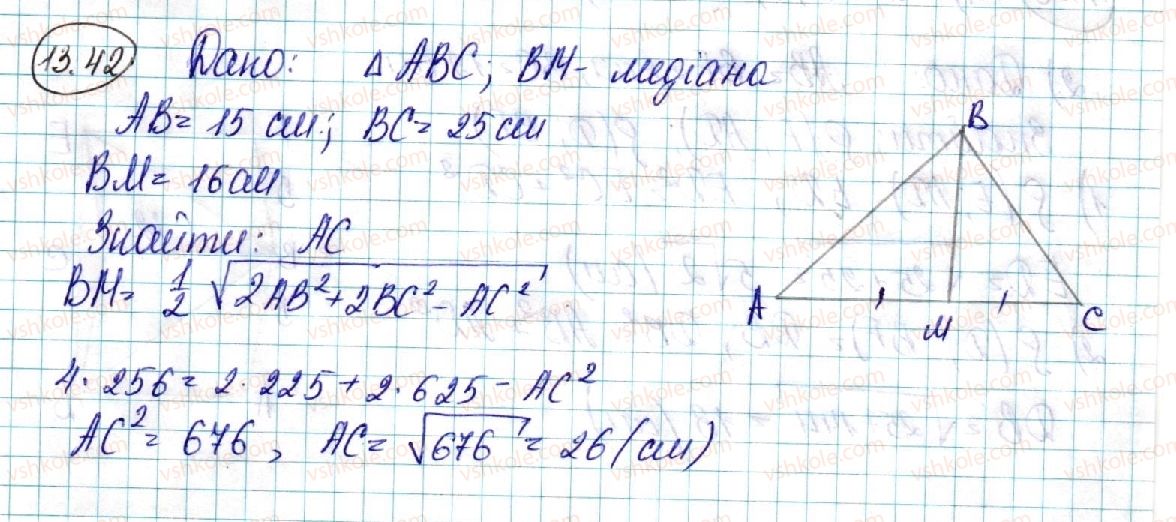 13.42 Дано: Δ ABC; BM - медіана
AB = 15 см; BC = 25 см
BM = 16 см
Знайти: AC
BM = 1/2 √(2AB² + 2BC² - AC²)
4 · 256 = 2 · 225 + 2 · 625 - AC²
AC² = 676, AC = √676 = 26 (см)
B
A
M
C
vshkole.com